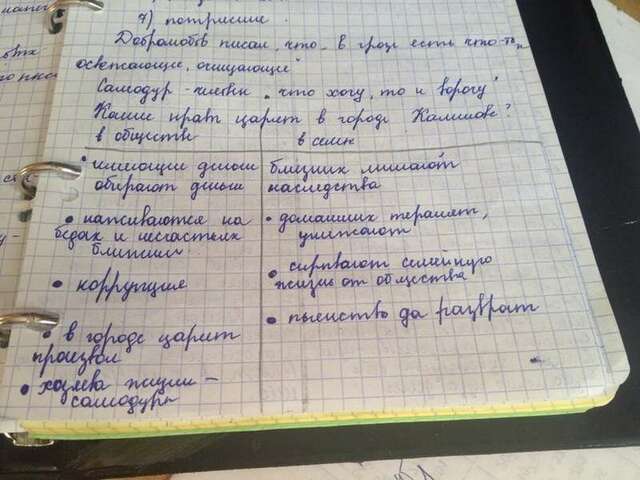 7) потрясение.
Добролюбов писал, что „в грозе есть что-то
освежающее, очищающее"
Самодур - человек „что хочу, то и ворочу"
Какие нравы царят в городе Калинове?
в обществе
в семье
• имеющие деньги
обирают
• наживаются на
бедах и несчастьях
ближних.
• коррупция
• в городе царит
произвол
• хозяева жизни -
самодуры
близких лишают
наследства
• домашних тиранят,
унижают
• скрывают семейную
жизнь от общества
• пьянство да разврат